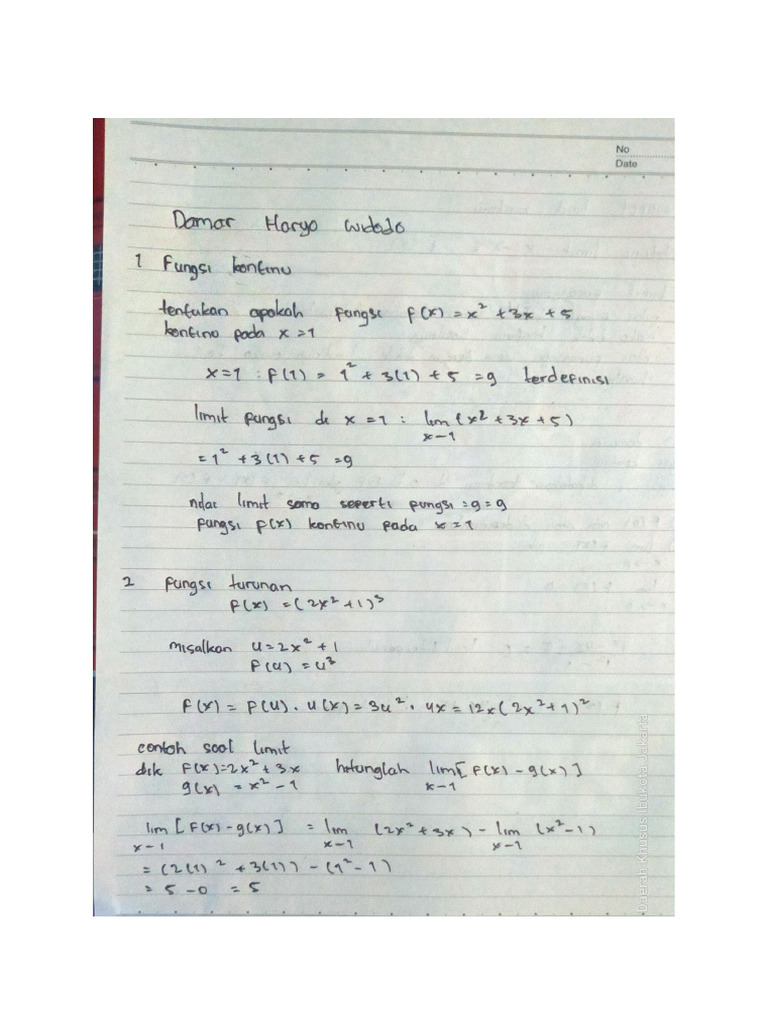 No
Date
Damar Haryo Widodo
1 Fungsi kontinu
tentukan apakah fungsi f(x) = x² + 3x + 5
kontinu pada x = 1
x=1 : f(1) = 1² + 3(1) + 5 = 9 terdefinisi
limit fungsi di x = 1 : lim (x² + 3x + 5)
x→1
= 1² + 3(1) + 5 = 9
nilai limit sama seperti fungsi = 9 = 9
fungsi f(x) kontinu pada x = 1
2 fungsi turunan
f(x) = (2x² + 1)³
misalkan u = 2x² + 1
f(u) = u³
f(x) = f(u) . u(x) = 3u² . 4x = 12x(2x² + 1)²
contoh soal limit
dik f(x) = 2x² + 3x hitunglah lim [f(x) - g(x)]
g(x) = x² - 1 x→1
lim [f(x) - g(x)] = lim (2x² + 3x) - lim (x² - 1)
x→1 x→1 x→1
= (2(1)² + 3(1)) - (1² - 1)
= 5 - 0 = 5
Daerah Khusus Ibukota Jakarta